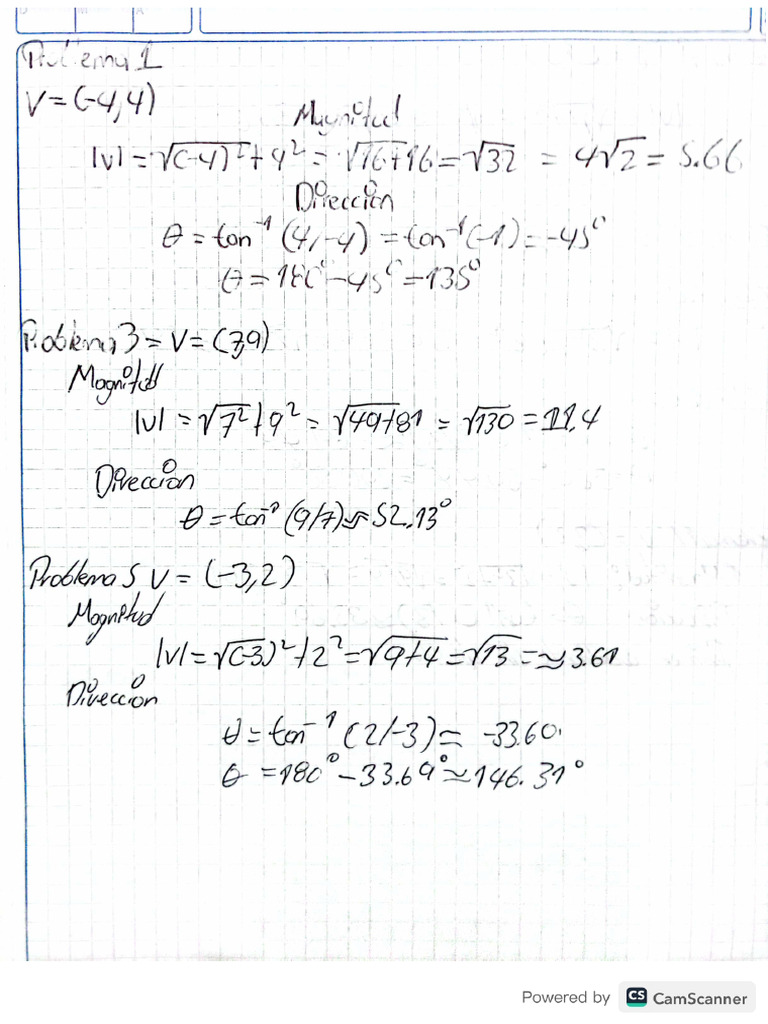 Problema 1
V = (-4, 4)
Magnitud
|v| = √(-4)² + 4² = √16+16 = √32 = 4√2 = 5.66
Dirección
θ = tan⁻¹ (4/-4) = tan⁻¹(-1) = -45°
θ = 180° - 45° = 135°
Problema 3 = V = (7,9)
Magnitud
|v| = √7² + 9² = √49+81 = √130 = 11.4
Dirección
θ = tan⁻¹ (9/7) ≈ 52.13°
Problema 5 V = (-3, 2)
Magnitud
|v| = √(-3)² + 2² = √9+4 = √13 = ≈ 3.61
Dirección
θ = tan⁻¹ (2/-3) = -33.60
θ = 180° - 33.69° ≈ 146.31°
Powered by CS CamScanner